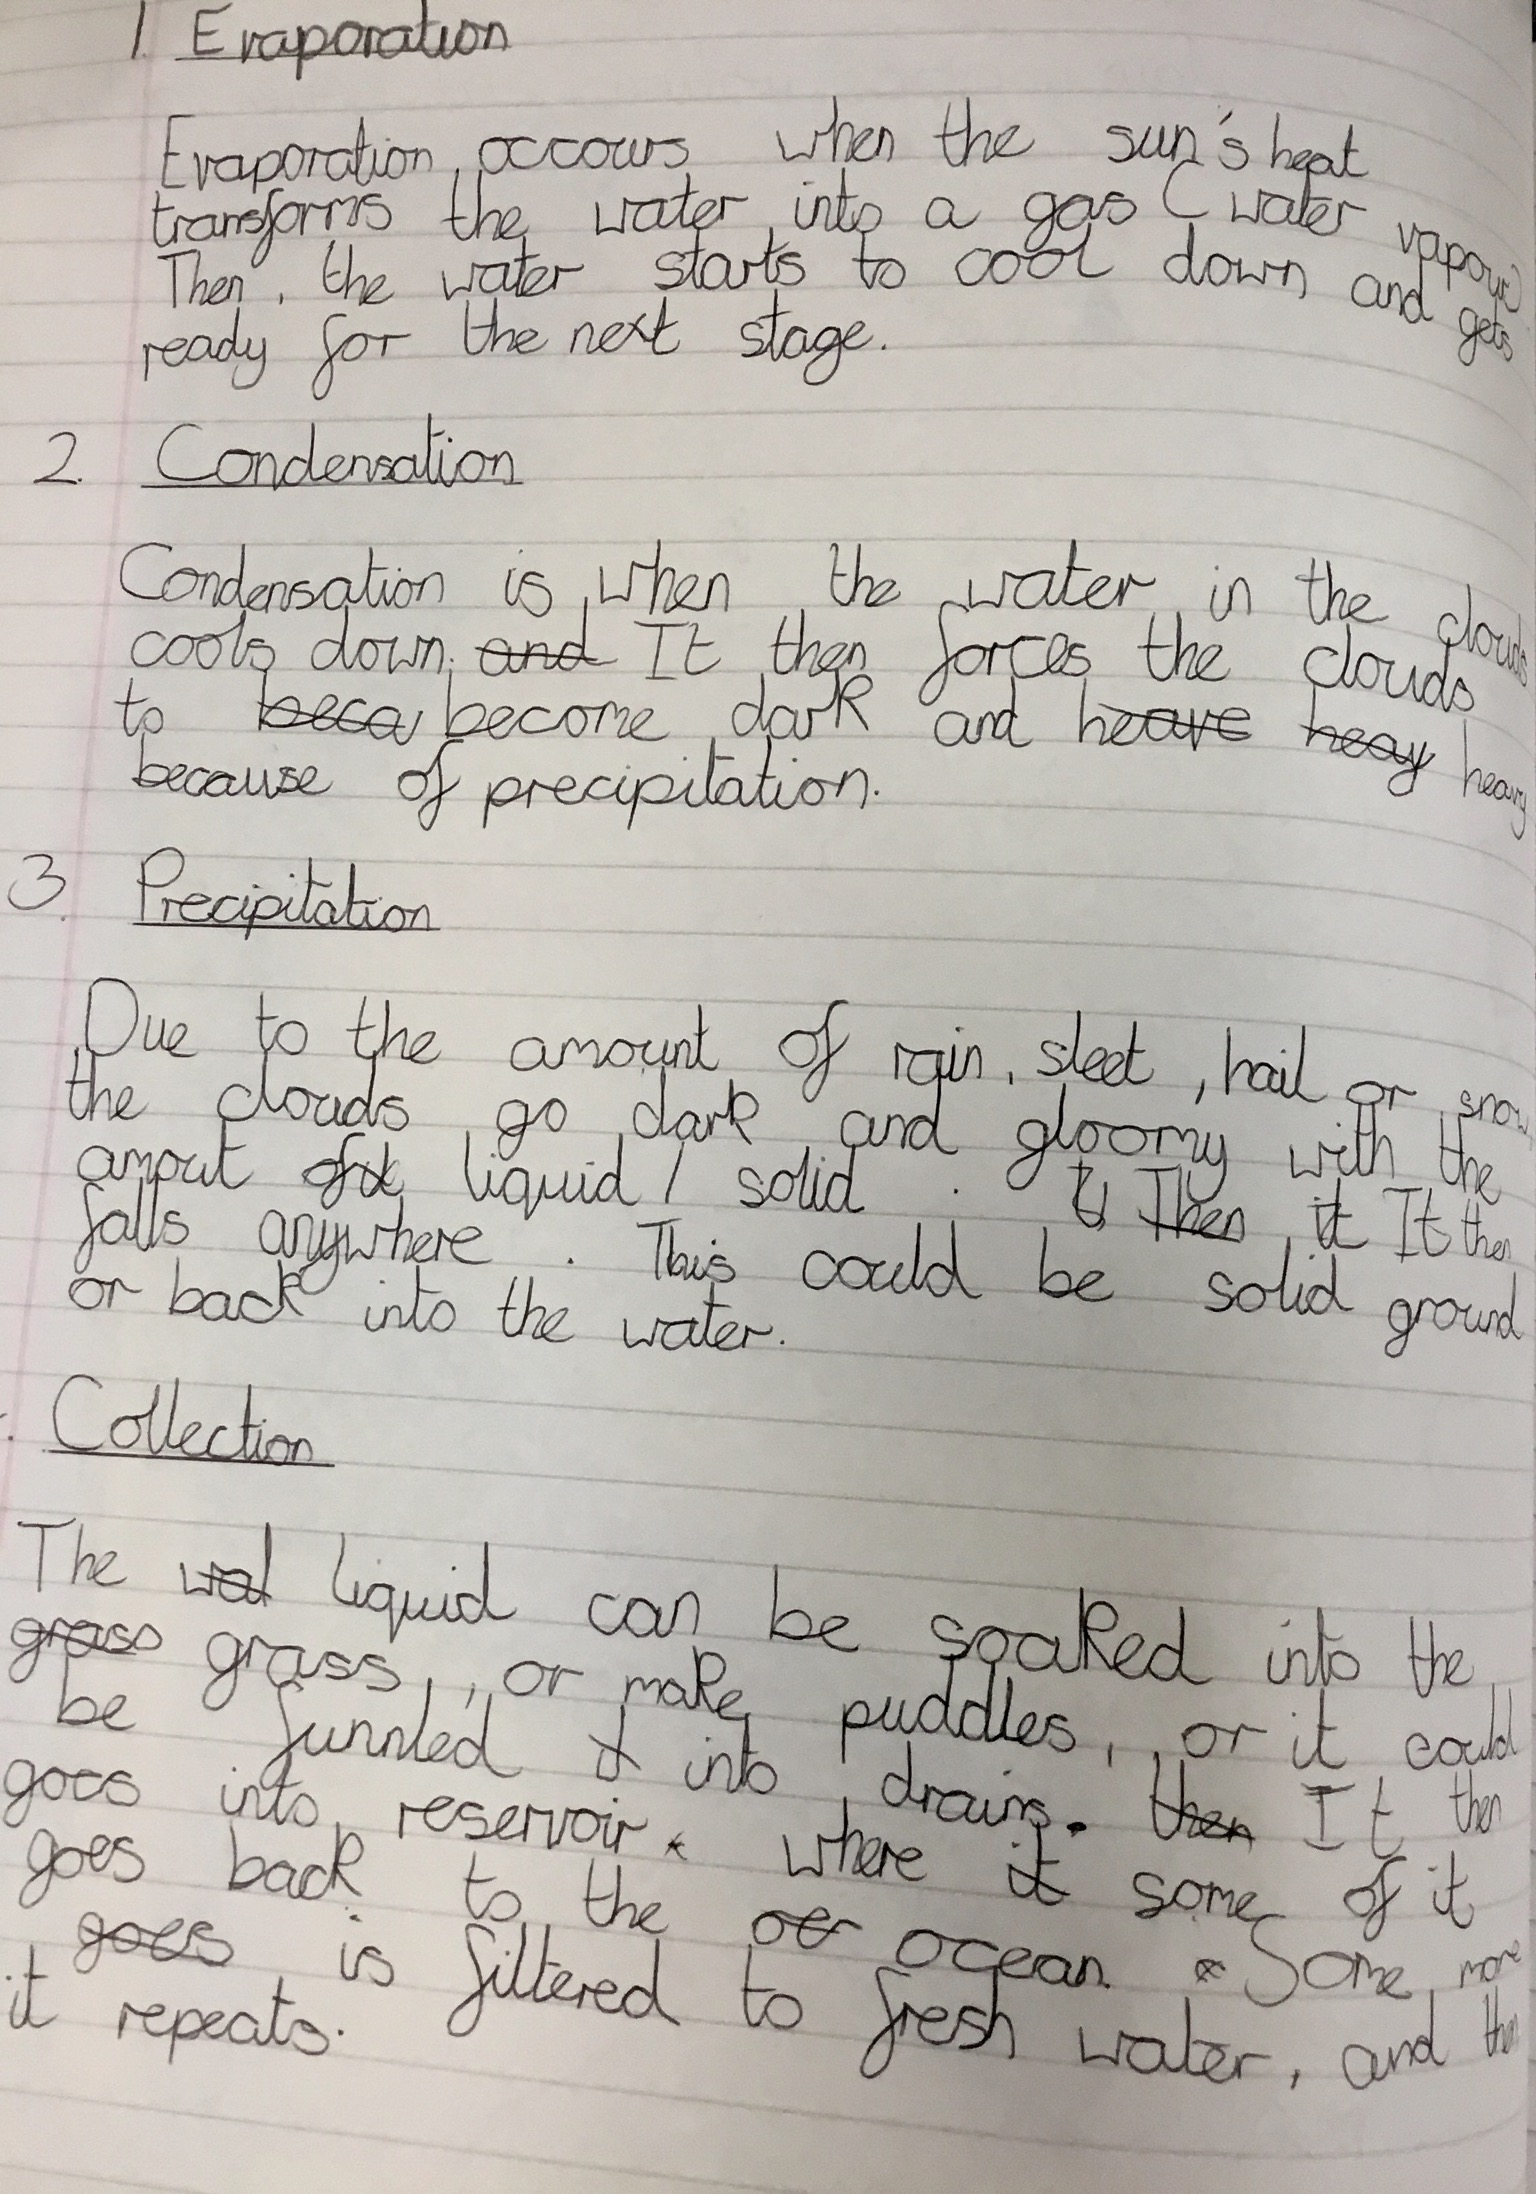 1. Evaporation
Evaporation occours when the sun's heat
transforms the water into a gas (water vapour)
Then, the water starts to cool down and gets
ready for the next stage.
2. Condensation
Condensation is when the water in the clouds
cools down. and It then forces the clouds
to beca become dark and heave heay heavy
because of precipitation.
3. Precipitation
Due to the amount of rain, sleet, hail or snow,
the clouds go dark and gloomy with the
amout of liquid / solid. Then it It then
falls anywhere. This could be solid ground
or back into the water.
. Collection
The wat liquid can be soaked into the
grass grass, or make puddles, or it could
be funnled into drains. then It then
goes into reservoir where it some of it
goes back to the ocean Some more
goes is filtered to fresh water, and then
it repeats.